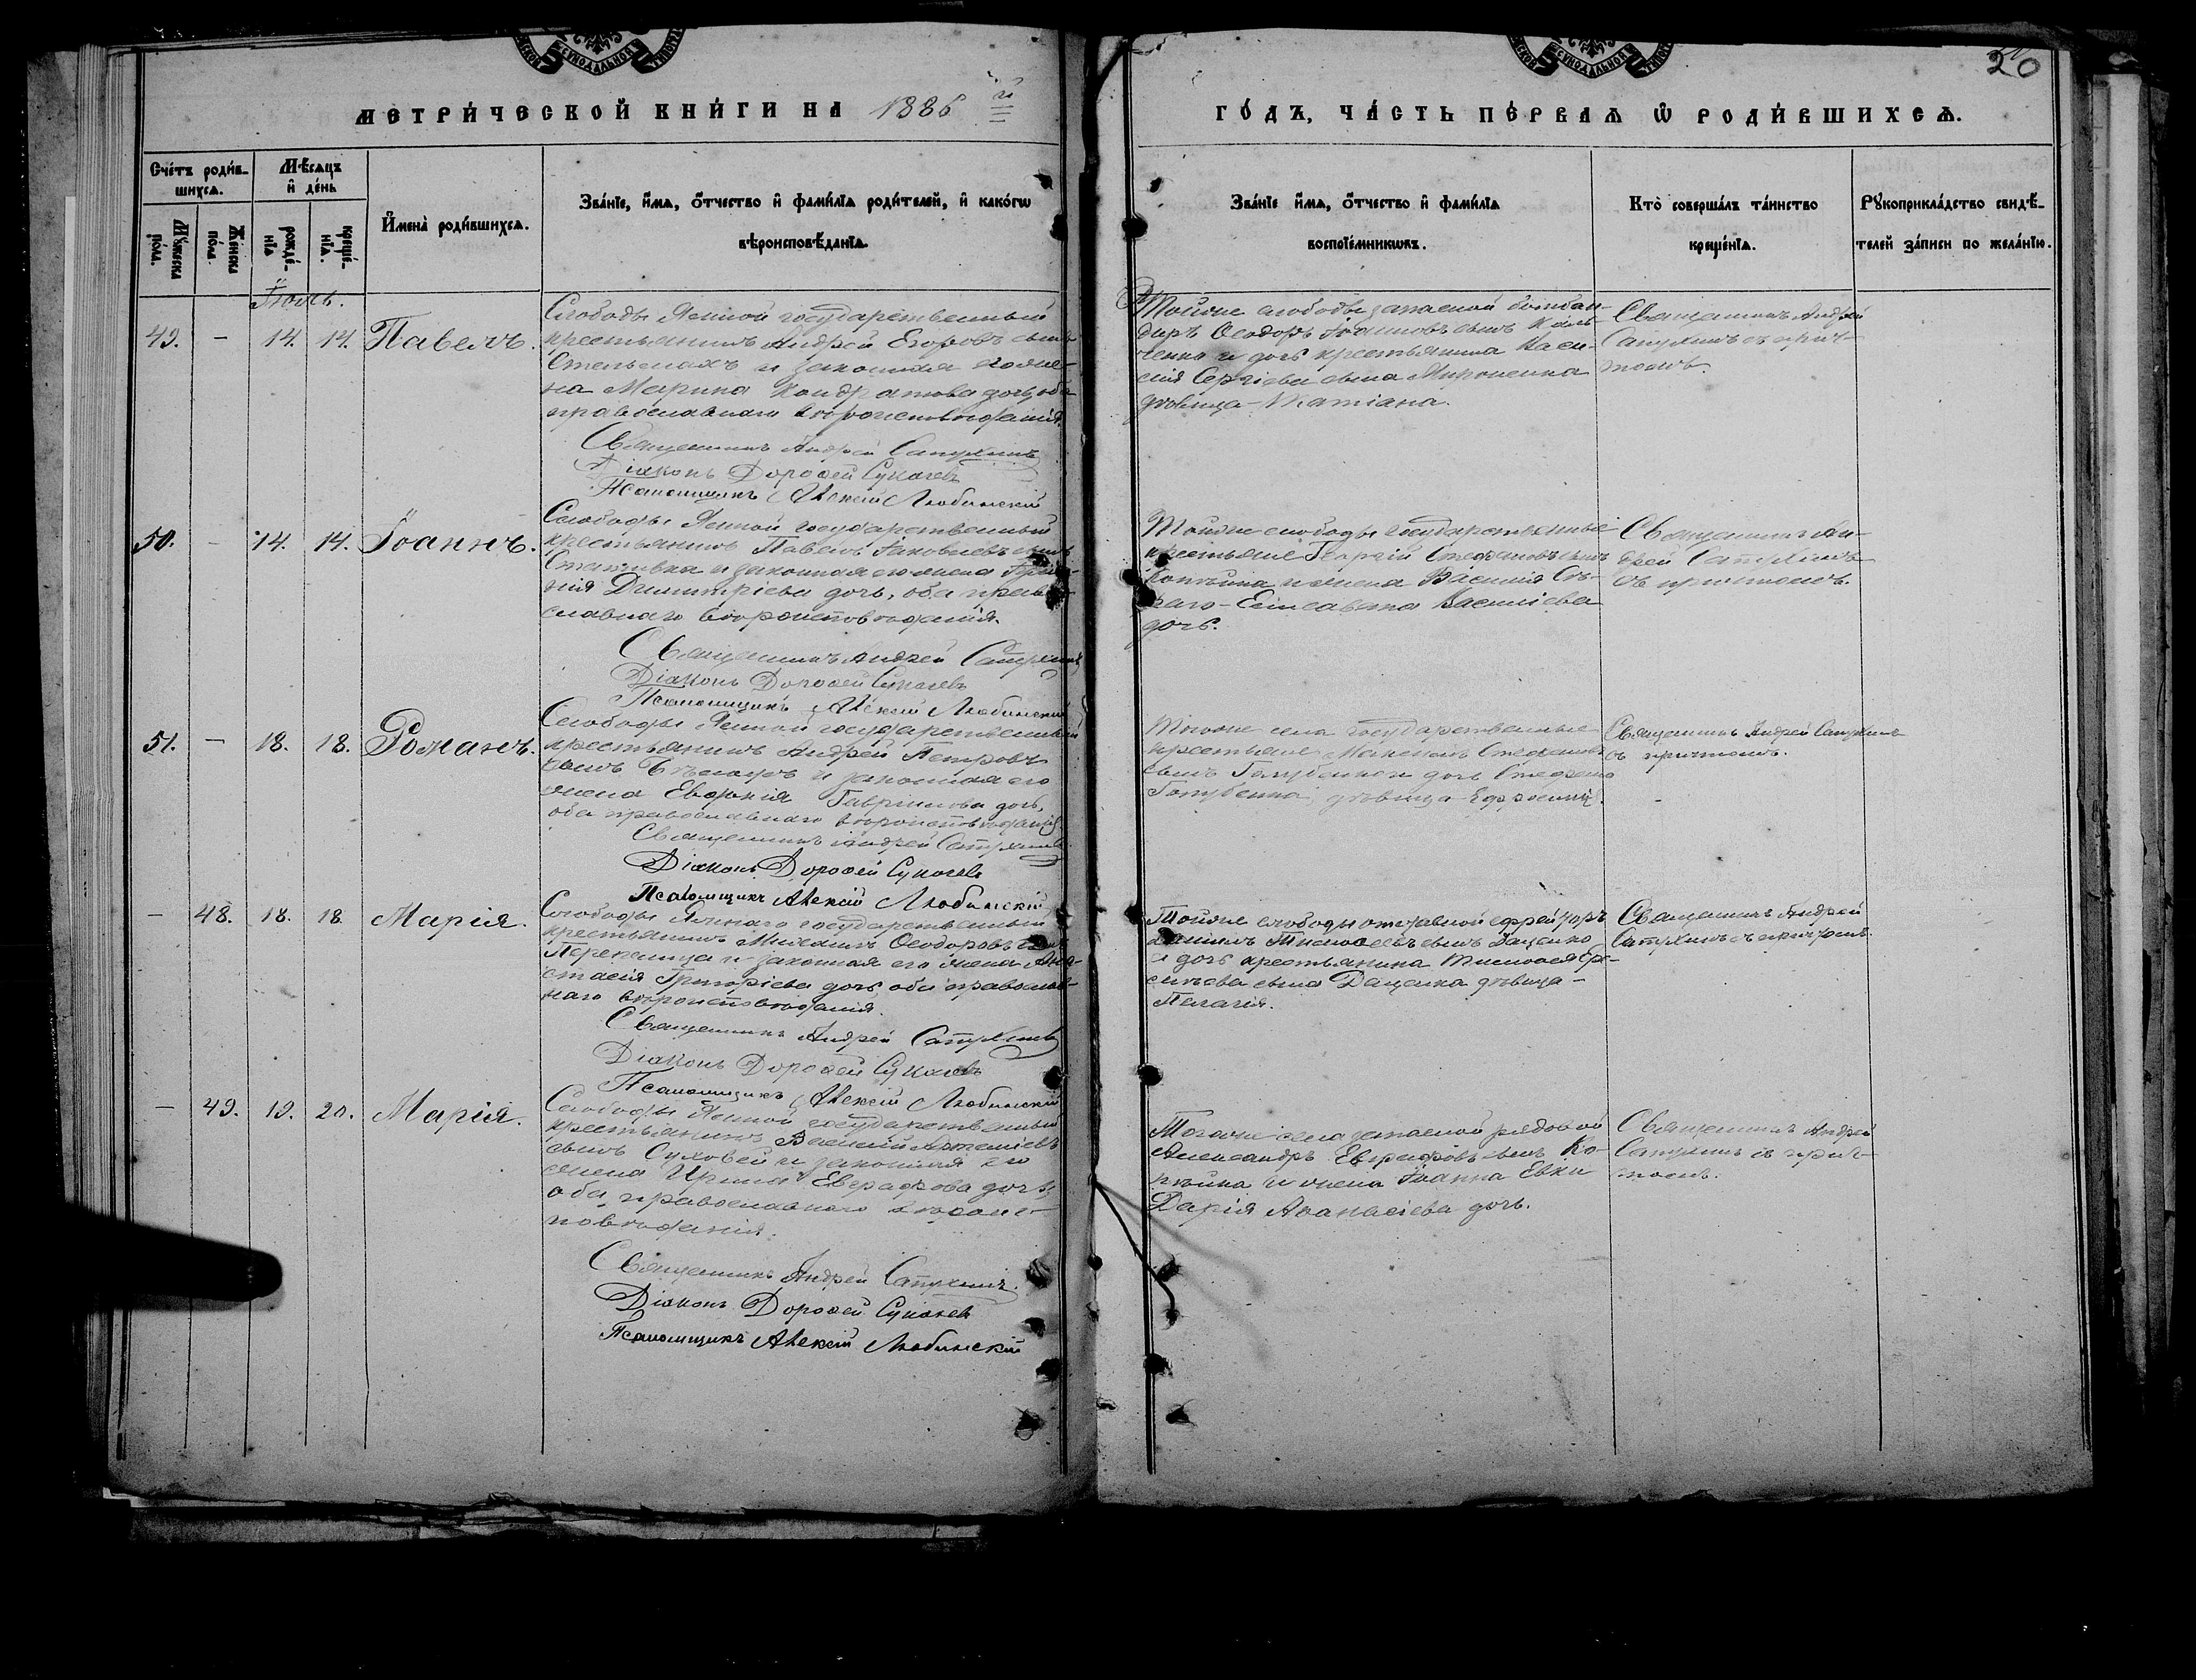 20
МЕТРИ́ЧЕСКОЙ КНИ́ГИ НА 1886 й
ГО́ДЪ, ЧА́СТЬ ПЕ́РВАѦ Ѡ҆ РОДИ́ВШИХСѦ.
Сче́тъ роди́в-
шихсѧ.
Мꙋ́жеска по́ла.
Же́нска по́ла
Мѣ́сѧцъ
и҆ де́нь
рожде́-
нїѧ
креще́-
нїѧ.
И҆мена̀ роди́вшихсѧ.
Зва́нїе, и҆́мѧ, ѻ҆́тчество и҆ фами́лїѧ роди́телей, и҆ како́гѡ
вѣроисповѣ́данїѧ.
Зва́нїе и҆́мѧ, ѻ҆́тчество и҆ фами́лїѧ
воспрїе́мникѡвъ.
Кто̀ соверша́лъ та́инство
креще́нїѧ.
Рꙋкоприкла́дство свидѣ́-
телей за́писи по жела́нїю.
Іюль.
49. – 14. 14. Павелъ.
Слободы Ясиной государственный
крестьянинъ Андрей Егоровъ сынъ
Стельмахъ и законная его же-
на Марина Кондратова дочь, оба
православнаго вѣроисповѣданія.
Священникъ Андрей Сапухинъ
Діаконъ Дороѳей Сукачевъ
Псаломщикъ Алексій Любинскій
Тойже слободы запасной бомбан-
диръ Ѳеодоръ Іоанновъ сынъ
и дочь крестьянина Васи-
лія Сергіева сына Мироненка
дѣвица – Татіана.
Священникъ Андрей
Сапухинъ съ прич-
томъ.
50. – 14. 14. Іоаннъ.
Слободы Ясиной государственный
крестьянинъ Павелъ Іаковлевъ сынъ
и законная его жена
Димитріева дочь, оба право-
славнаго вѣроисповѣданія.
Священникъ Андрей Сапухинъ
Діаконъ Дороѳей Сукачевъ
Псаломщикъ Алексій Любинскій
Тойже слободы государственные
крестьяне Георгій Стефановъ сынъ
и жена Василія
Елисавета Васильева
дочь.
Священникъ Ан-
дрей Сапухинъ
съ причтомъ.
51. – 18. 18. Романъ.
Слободы Ясиной государственный
крестьянинъ Андрей Петровъ
сынъ и законная его
жена Евфимія Гавріилова дочь,
оба православнаго вѣроисповѣданія.
Священникъ Андрей Сапухинъ
Діаконъ Дороѳей Сукачевъ
Псаломщикъ Алексій Любинскій
села государственные
крестьяне Стефановъ
сынъ Голубенко и дочь Стефана
Голубенка, дѣвица Ефросинія.
Священникъ Андрей Сапухинъ
съ причтомъ.
– 48. 18. 18 Марія.
Слободы государственный
крестьянинъ Ѳеодоровъ сынъ
и законная его жена Ана-
стасія Григоріева дочь, оба православ-
наго вѣроисповѣданія.
Священникъ Андрей Сапухинъ
Діаконъ Дороѳей Сукачевъ
Псаломщикъ Алексій Любинскій
Тойже слободы отставной ефрейторъ
Даніилъ Тимоѳеевъ сынъ Даценко
и дочь крестьянина Тимоѳея
сына Даценка дѣвица –
Пелагія.
Священникъ Андрей
Сапухинъ съ причтомъ.
– 49. 19. 20. Марія.
Слободы Ясиной государственный
крестьянинъ Василій Артеміевъ
сынъ Суховей и законная его
жена Ирина Евграфова дочь,
оба православнаго вѣроис-
повѣданія.
Священникъ Андрей Сапухинъ.
Діаконъ Дороѳей Сукачевъ
Псаломщикъ Алексій Любинскій
Тогоже села запасной рядовой
Александръ Евграфовъ сынъ
и жена Іоанна
Дарія Аѳанасіева дочь.
Священникъ Андрей
Сапухинъ съ прич-
томъ.